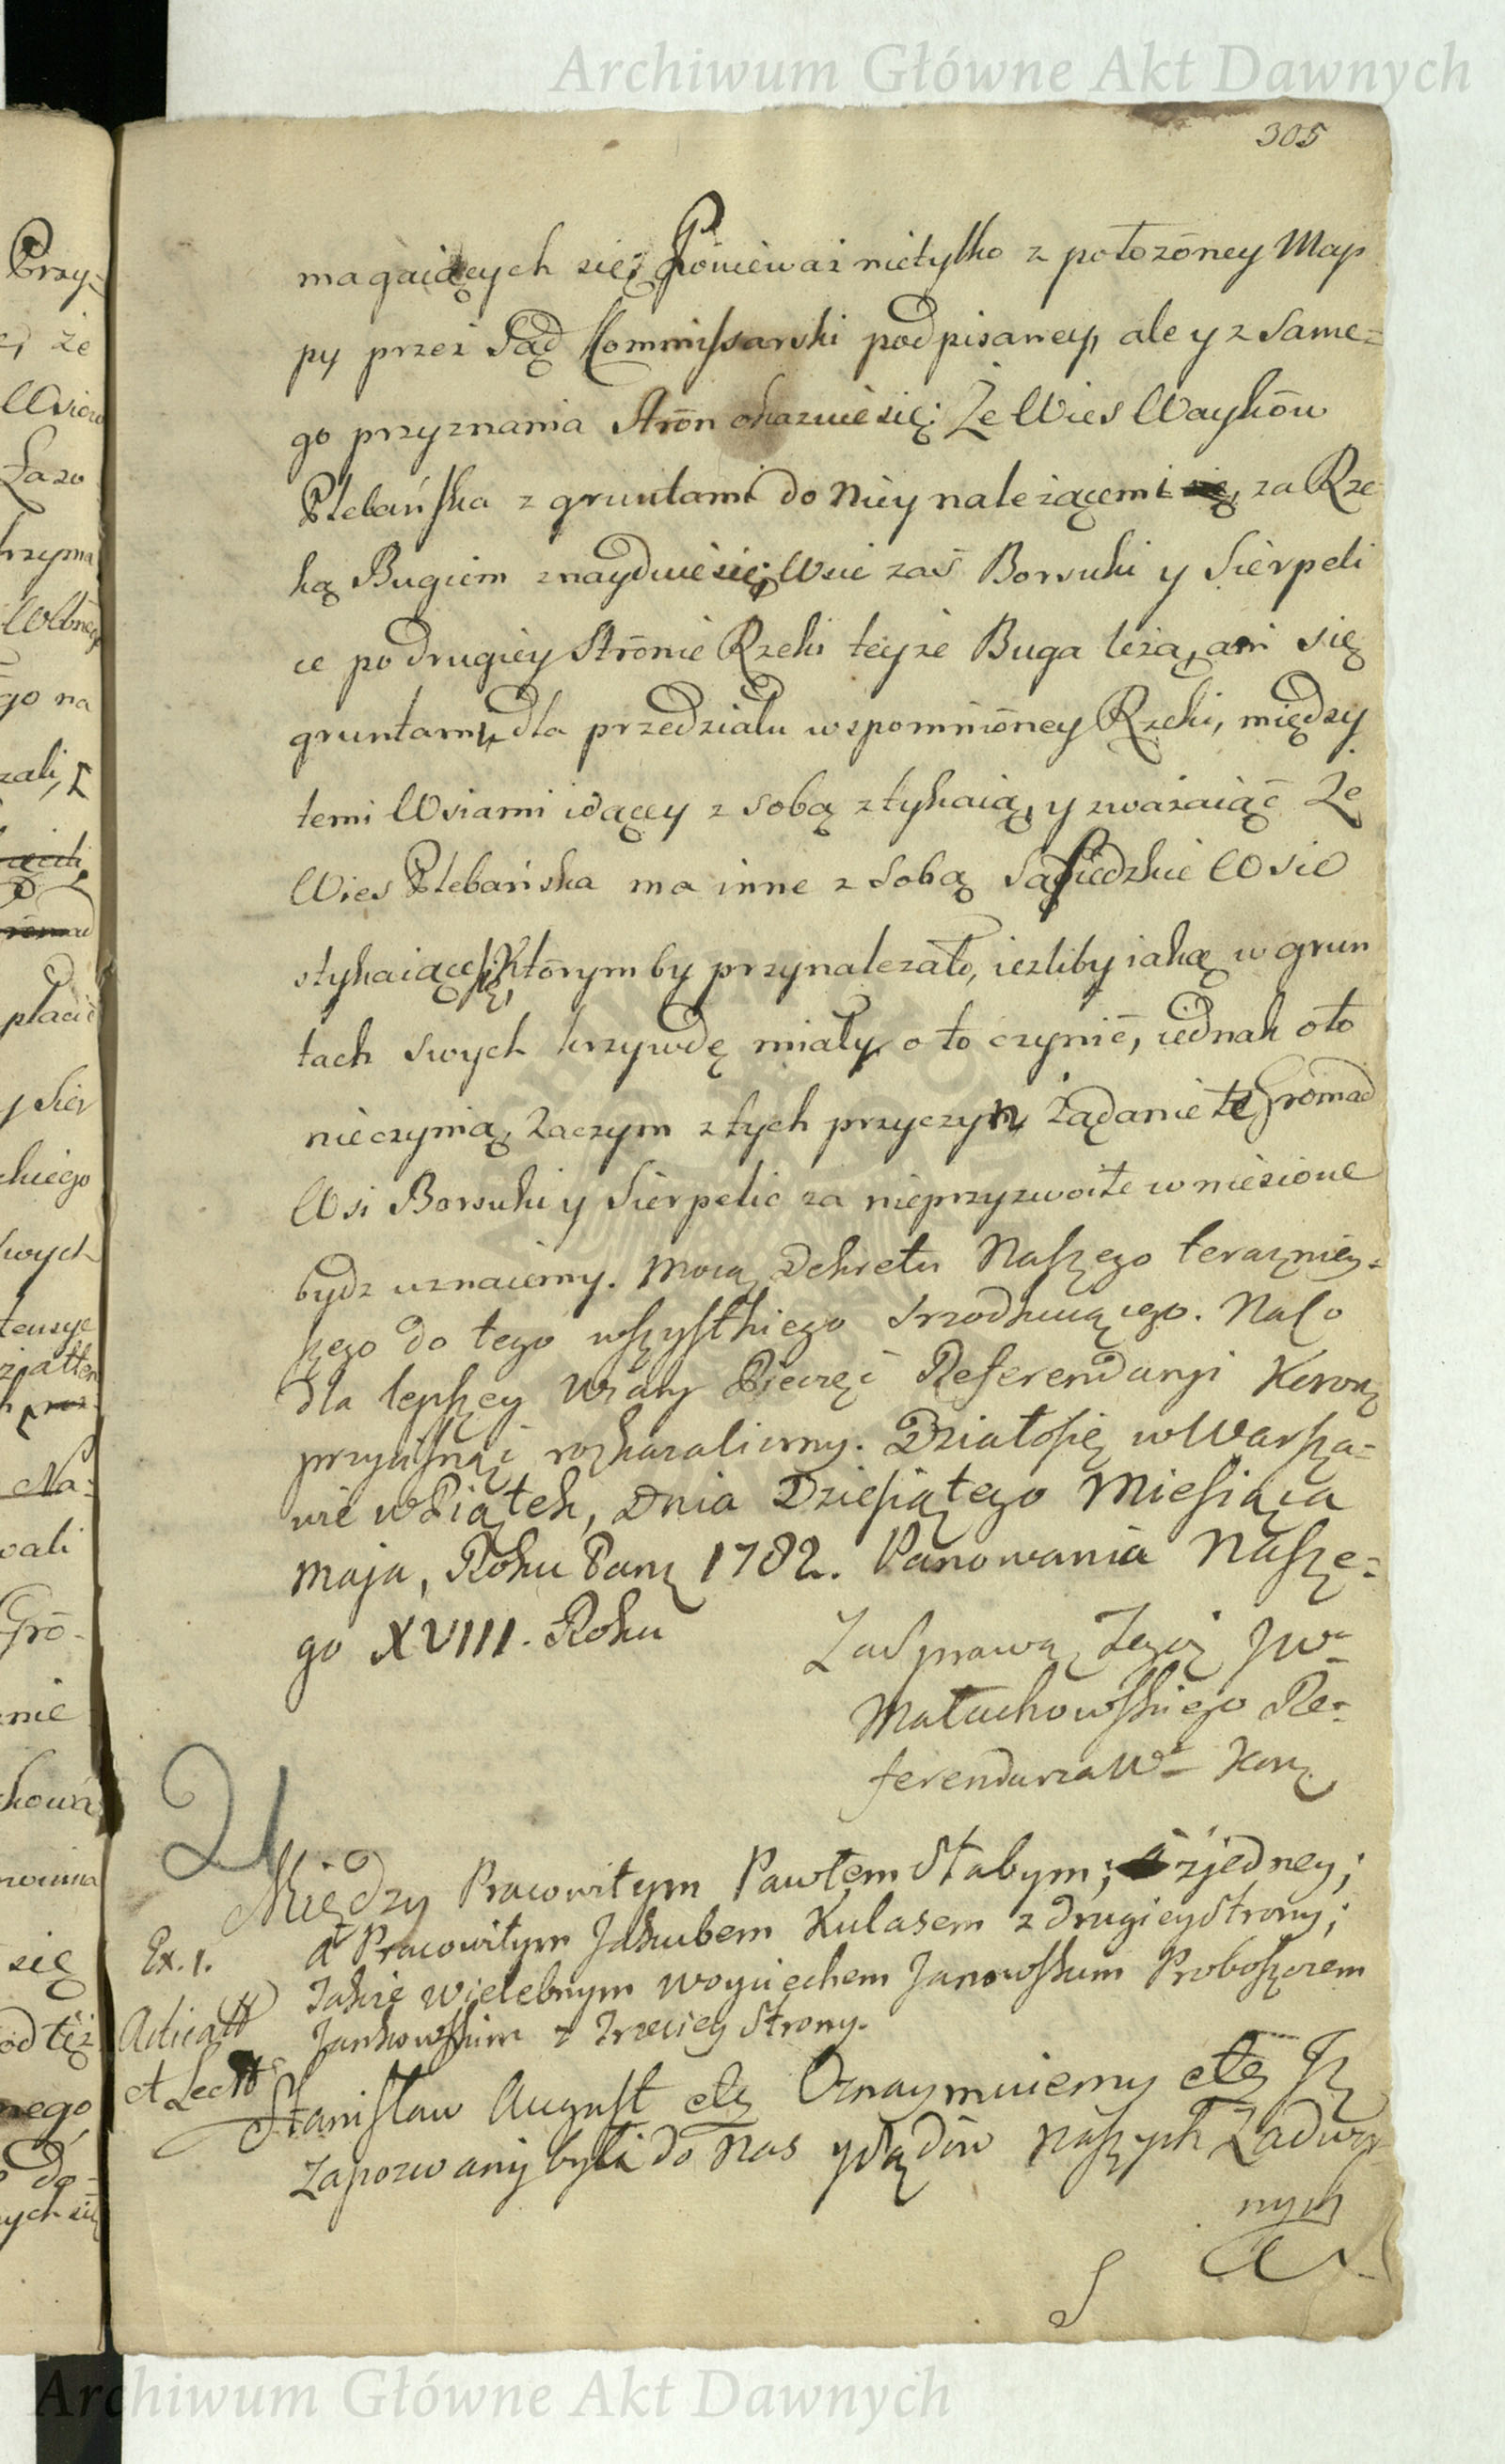 Archiwum Główne Akt Dawnych
305
magaiących się; Poniewaz nietylko z położōney Map
py przez Sąd Kommissarski podpisaney, ale y z same=
go przyznania Strōn okazuie się: Ze Wies Waykōw
Plebańska z gruntami do Niey należącemi, za Rze
ką Bugiem znayduie się; Wsie zaś Borsuki y Sierpeli
ce po drugiey Strōnie Rzeki teyze Buga leżą, ani się
gruntami, dla przedziału wspomniōney Rzeki, między
temi Wsiami idącey z sobą ztykaią, y zważaiąc Ze
Wies Plebańska ma inne z sobą sąsiedzkie Wsie
stykaiące się, Ktōrymby przynalezało, iezliby iaką w grun
tach swych krzywdę miały, o to czynić, iednak o to
nieczynią, Zaczym z tych przyczyn Żądanie te Gromad
Wsi Borsuki y Sierpelic za nieprzyzwoite wniesione
bydz uznaiemy. Mocą Dekretu Naszego terazniey=
szego do tego wszystkiego srzodkuiącego. Na co
dla lepszey Wiary Pieczęć Referendaryi Koron
przycisnąć rozkazalismy. Działo się w Warsza=
wie w Piątek, Dnia Dziesiątego Miesiąca
Maja, Roku Pans 1782. Panowania Nasze=
go XVIII. Roku
Za Sprawą Jego JW
Małachowskiego Re=
ferendarza W Kor
Między Pracowitym Pawłem Słabym; z jedney;
a Pracowitym Jakubem Kulasem z drugiey Strony;
Ex. 1.
Takze Wielebnym Woyciechem Janowskim Proboszczem
Jankowskim z Trzeciey Strony.
Acticatt
et Lectt
Stanisław August etc Oznaymuiemy etc Jz
Zapozwany byli do Nas y Sądōw Naszych Zadwor
nych
Archiwum Główne Akt Dawnych